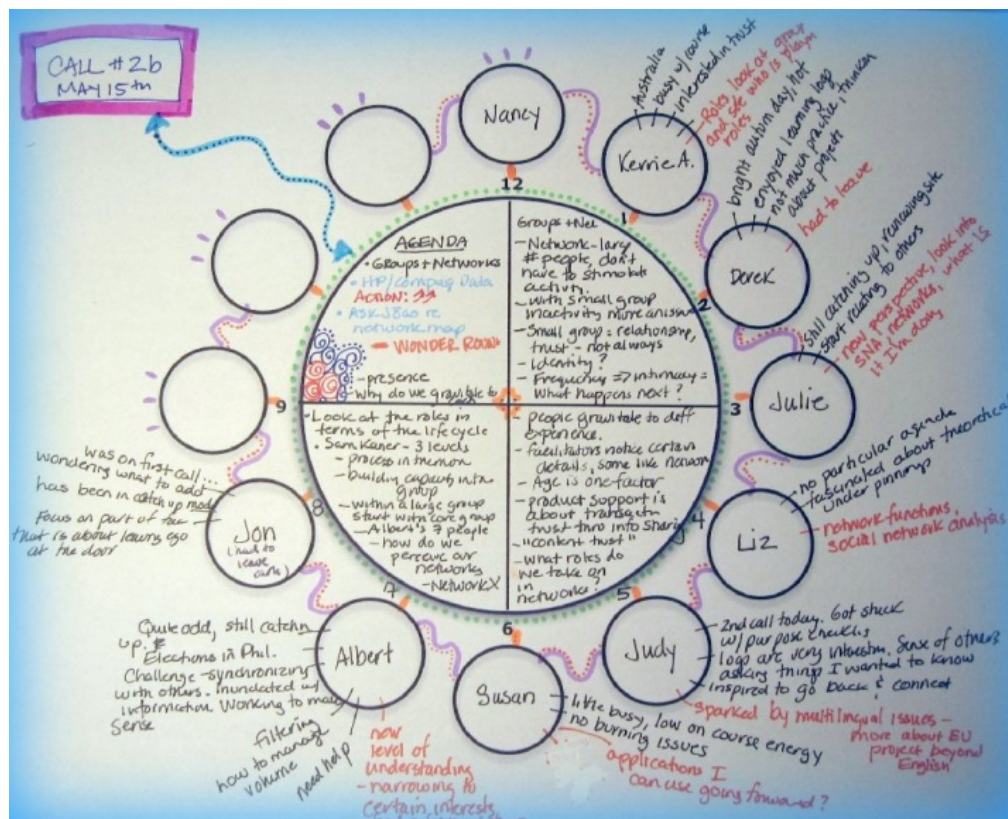 CALL #2b
MAY 15TH
Nancy
12
Kerrie A.
1
Australia
busy w/course
interested in trust
Roles, look at group
and see who is playing
roles
Derek
2
bright autumn day, hot
enjoyed learning logs
not much practice, thinking
about project
had to leave
Julie
3
still catching up, reviewing site
start relating to others
new perspective, look into
SNA, networks, what is
it I'm doing
Liz
4
no particular agenda
fascinated about theoretical
under pinnings
network functions,
social network analysis
Judy
5
2nd call today. Got stuck
w/purpose checklis
logs are very interestin. Sense of others
asking things I wanted to know
inspired to go back & connect
sparked by multilingual issues -
more about EU
project beyond
English
Susan
6
life busy, low on course energy
no burning issues
applications I
can use going forward?
Albert
7
Quite odd, still catchin
up. #
Elections in Phil.
Challenge - synchronizing
with others. inundated w/
information. Working to make
Sense
filtering
how to manage
volume
need help
new
level of
understanding
- narrowing to
certain interests
Jon
(had to
leave early)
8
was on first call...
wondering what to add
has been in catch up mode
Focus on part of the
that is about leaving ego
at the door
9
AGENDA
• GROUPS + NETWORKS
• HP/Compaq Data
ACTION:
• ASK
re
network map
WONDER ROUND
- presence
- Why do we gravitate to
Groups + Net
- Network - larg
# people, don't
have to stimulate
activity.
- with small group
inactivity more an issue
- Small group = relationship,
trust - not always
- Identity?
- Frequency => intimacy =
What happens next?
• Look at the roles in
terms of the lifecycle
• Sam Kaner - 3 levels
- process in the mon
- building capacity into
group
- within a large group
start with core group
- Albert's 7 people
- how do we
perceive our
networks
- NetworkX
- people gravitate to diff
experience.
- facilitators notice certain
details, some like network
- Age is one factor
- product support is
about transactn
trust thro info sharing
- "content trust"
- what roles do
we take on
in
networks?